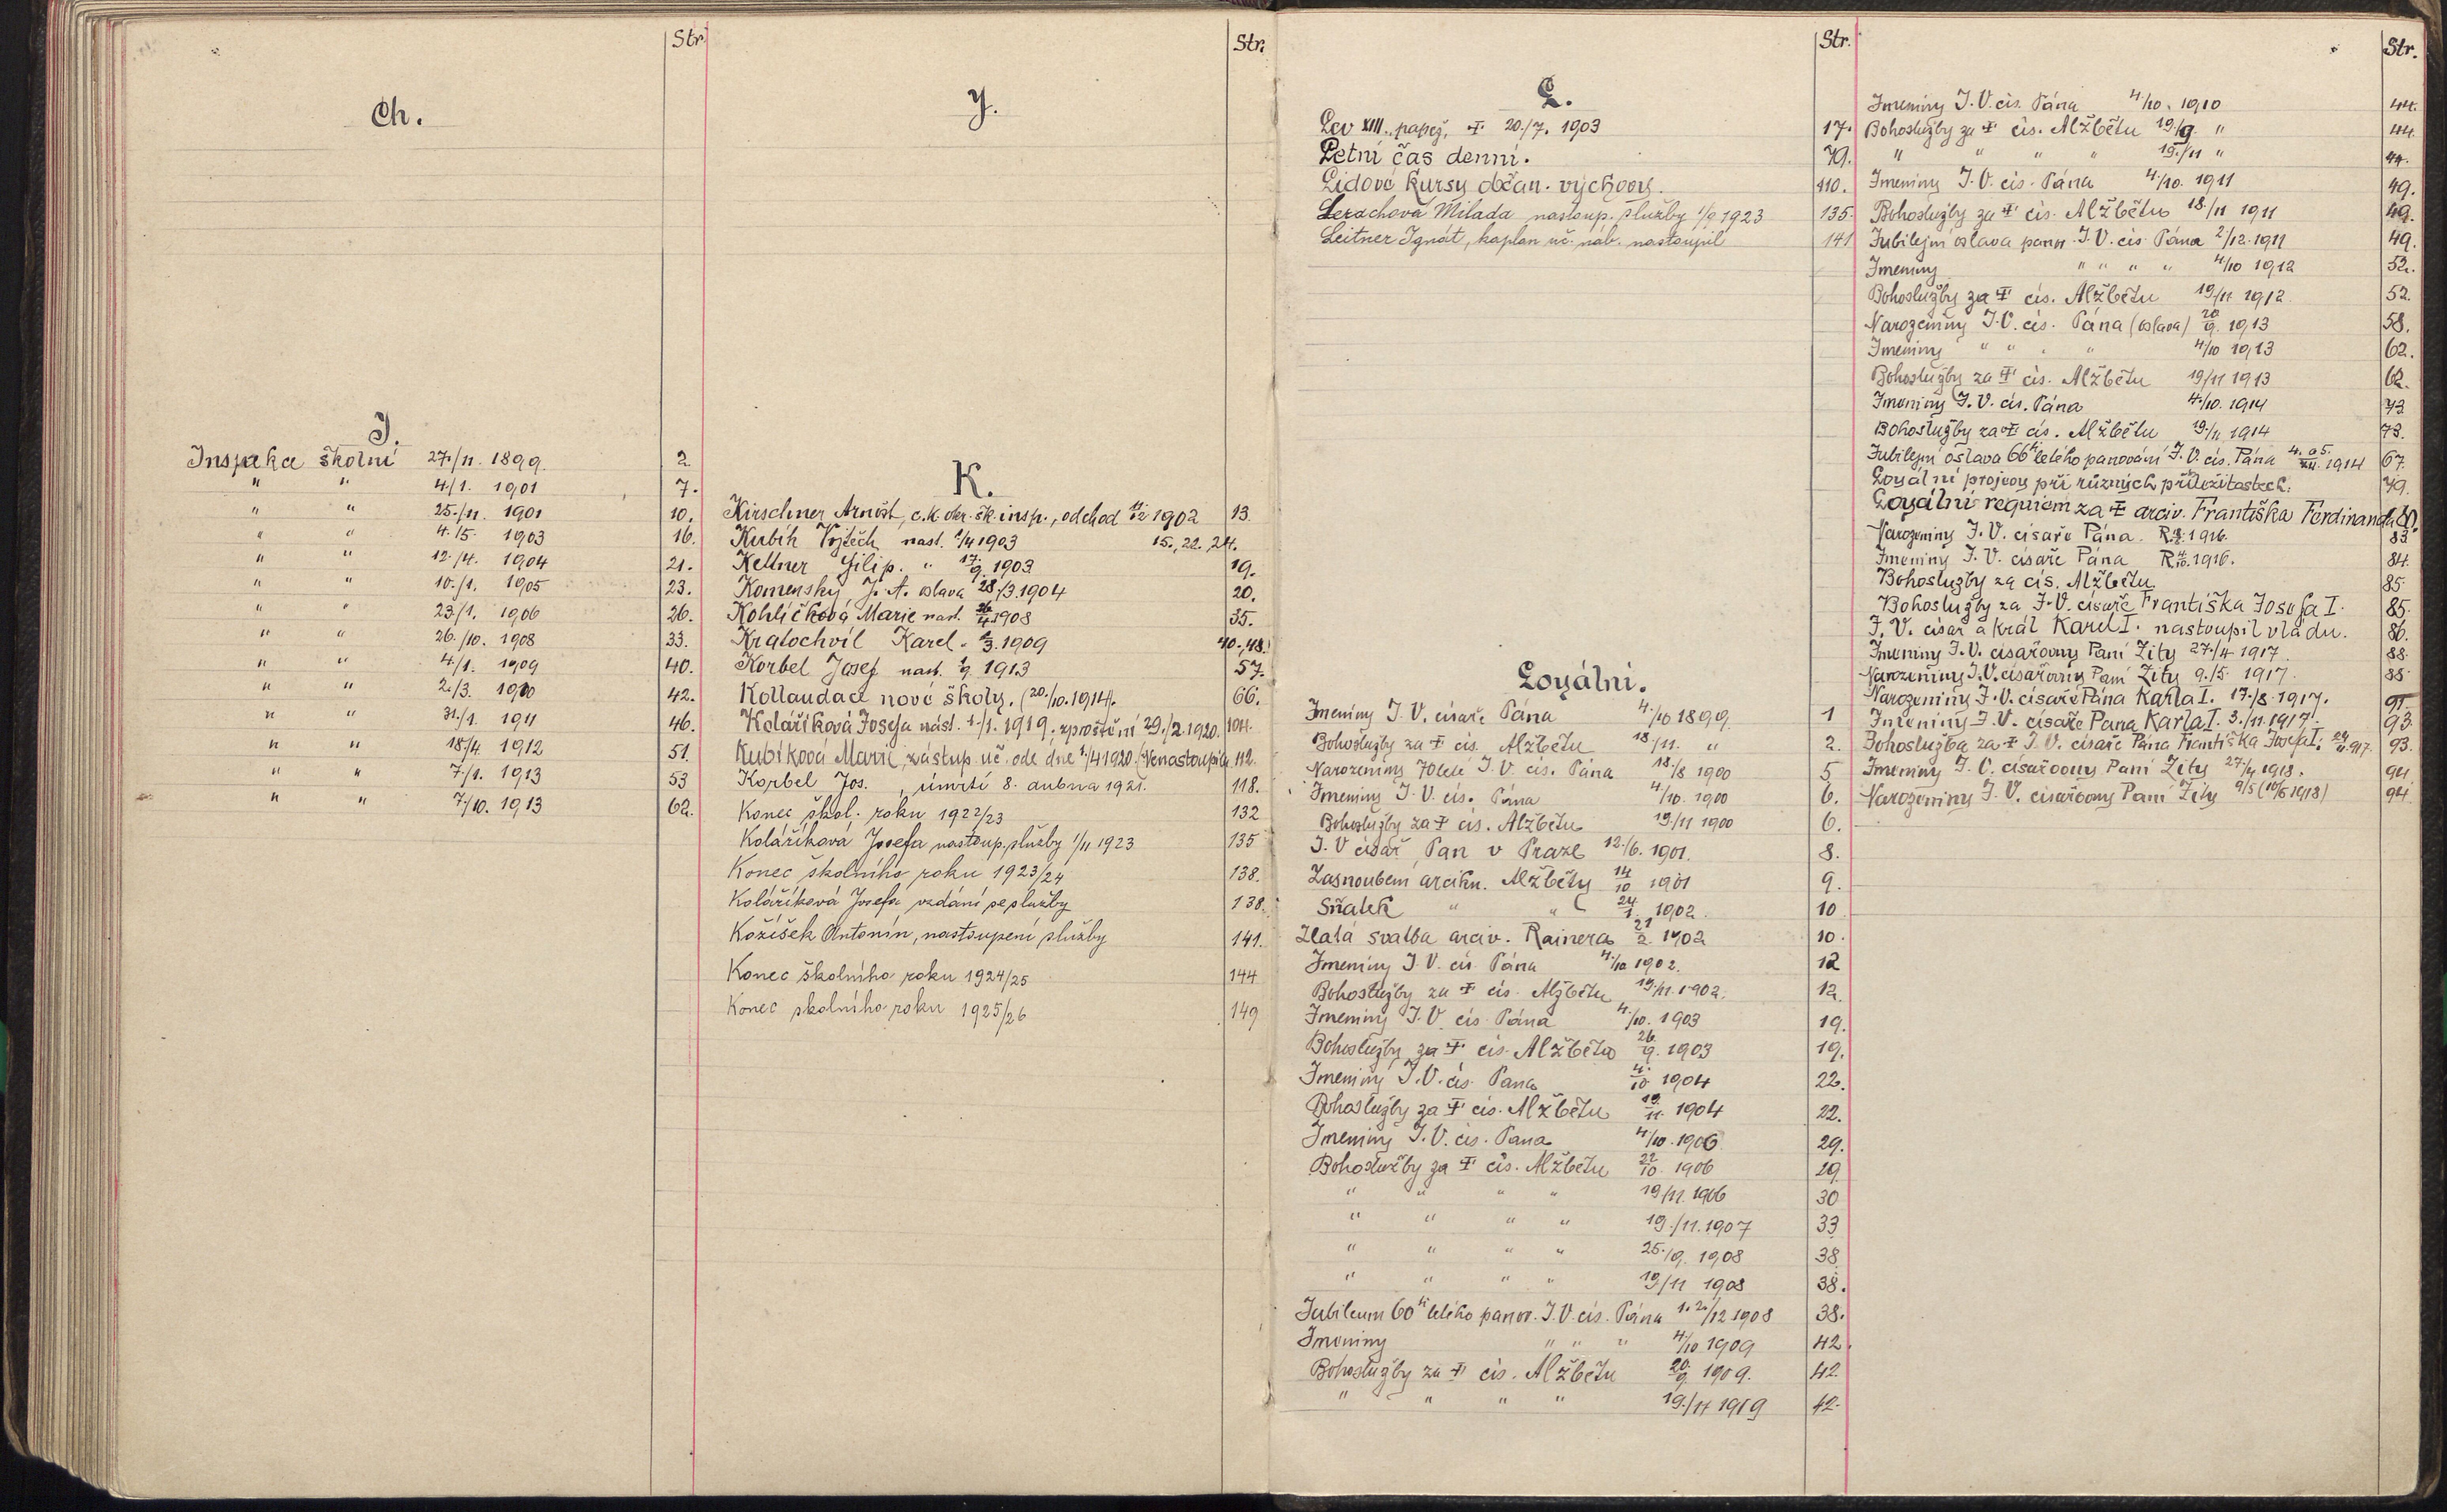 Str.
Ch.
I.
Inspekce školní 27./11. 1899. 2
" " 4/1. 1901 7.
" " 25./11. 1901 10.
" " 4./5. 1903 16.
" " 12./4. 1904 21.
" " 10./1. 1905 23.
" " 23/1. 1906 26.
" " 26./10. 1908 33.
" " 4/1. 1909 40.
" " 2./3. 1910 42.
" " 31./1. 1911 46.
" " 18/4 1912 51.
" " 7/1. 1913 53
" " 7/10. 1913 62.
Str.
J.
K.
Kirschner Arnošt, c.k. okr. šk. insp., odchod 1902 13.
Kubík Vojtěch nast. 1/4 1903 15., 22., 24.
Kellner Filip. " 17./9. 1903 19.
Komenský, J. A. oslava 28./3. 1904 20.
Kohlíčková Marie nast. 1908 35.
Kratochvíl Karel " 1/3. 1909 40., 48.
Korbel Josef nast. 1/9 1913 57.
Kollaudace nové školy. (20./10. 1914). 66.
Koláříková Josefa nást. 1./1. 1919, zproštění 29./2. 1920. 104.
Kubíková Marie, zástup. uč. ode dne 1./4 1920. (Nenastoupila 112.
Korbel Jos. , úmrtí 8. dubna 1921. 118.
Konec škol. roku 1922/23 132
Koláříková Josefa nastoup. služby 1/11 1923 135
Konec školního roku 1923/24 138.
Koláříková Josefa vzdání se služby 138.
Kožíšek Antonín, nastoupení služby 141.
Konec školního roku 1924/25 144
Konec školního roku 1925/26 149
Str.
L.
Lev XIII., papež, † 20./7. 1903 17.
Letní čas denní. 79.
Lidové kursy občan. výchovy. 110.
Lerachova Milada nastoup. služby 1/9 1923 135.
Leitner Ignát, kaplan uč. náb. nastoupil 141
Loyální.
Jmeniny J. V. císaře Pána 4./10 1899 1
Bohoslužby za † cís. Alžbětu 18./11. " 2.
Narozeniny 70leté J. V. cís. Pána 18./8 1900 5
Jmeniny J. V. cís. Pána 4/10. 1900 6.
Bohoslužby za † cis. Alžbětu 19./11 1900 6.
J. V císař Pán v Praze 12./6. 1901. 8.
Zasnoubení arcikn. Alžběty 14/10 1901 9.
Sňatek " " 24./1. 1902. 10
Zlatá svatba arciv. Rainera 21/2. 1902 10.
Jmeniny J. V. cís. Pána 4./10 1902. 12
Bohoslužby za † cís. Alžbětu 19./11. 1902. 12.
Jmeniny J. V. cís. Pána 4./10. 1903 19.
Bohoslužby za † cís. Alžbětu 26./9. 1903 19.
Jmeniny J. V. cís. Pána 4./10 1904 22.
Bohoslužby za † cís. Alžbětu 19./11. 1904 22.
Jmeniny J. V. cís. Pána 4/10. 1906 29.
Bohoslužby za † cís. Alžbětu 22/10. 1906 29.
" " " " 19/11. 1906 30
" " " " 19./11. 1907 33
" " " " 25./9. 1908 38
" " " " 19/11 1908 38.
Jubileum 60ti letého panov. J. V. cís. Pána 1. 2./12 1908 38.
Jmeniny " " " 4/10 1909 42.
Bohoslužby za † cís. Alžbětu 20./9. 1909. 42.
" " " " 19./11 1919 42.
Str.
Jmeniny J. V. cís. Pána 4./10. 1910 44.
Bohoslužby za † cís. Alžbětu 19./9. " 44.
" " " " 19./11 " 44.
Jmeniny J. V. cís. Pána 4./10. 1911 49.
Bohoslužby za † cís. Alžbětu 18./11 1911 49.
Jubilejní oslava panov. J. V. cís. Pána 2/12. 1911 49.
Jmeniny " " " " 4./10 1912 52.
Bohoslužby za † cís. Alžbětu 19/11 1912. 52.
Narozeniny J. V. cís. Pána (oslava) 20/9. 1913 58.
Jmeniny " " " " 4/10 1913 62.
Bohoslužby za † cís. Alžbětu 19/11 1913 62.
Jmeniny J. V. cís. Pána 4./10. 1914 73.
Bohoslužby za † cís. Alžbětu 19./11. 1914 73.
Jubilejní oslava 66ti letého panování J. V. cís. Pána 4. a 5./XII. 1914 67.
Loyální projevy při různých příležitostech. 79.
Loyální requiem za † arciv. Františka Ferdinanda
Narozeniny J. V. císaře Pána. R. 1916. 83
Jmeniny J. V. císaře Pána R. 1916. 84.
Bohoslužby za cís. Alžbětu. 85
Bohoslužby za J. V. císaře Františka Josefa I. 85.
J. V. císař a král Karel I. nastoupil vládu. 86.
Jmeniny J. V. císařovny Paní Zity 27./4 1917 88.
Narozeniny J. V. císařovny Paní Zity 9./5 1917 88.
Narozeniny J. V. císaře Pána Karla I. 17./8 1917. 91.
Jmeniny J. V. císaře Pána Karla I. 3./11. 1917. 93.
Bohoslužba za † J. V. císaře Pána Františka Josefa I. 93.
Jmeniny J. V. císařovny Paní Zity 27./4 1918. 94.
Narozeniny J. V. císařovny Paní Zity 9/5 (10/5 1918) 94.